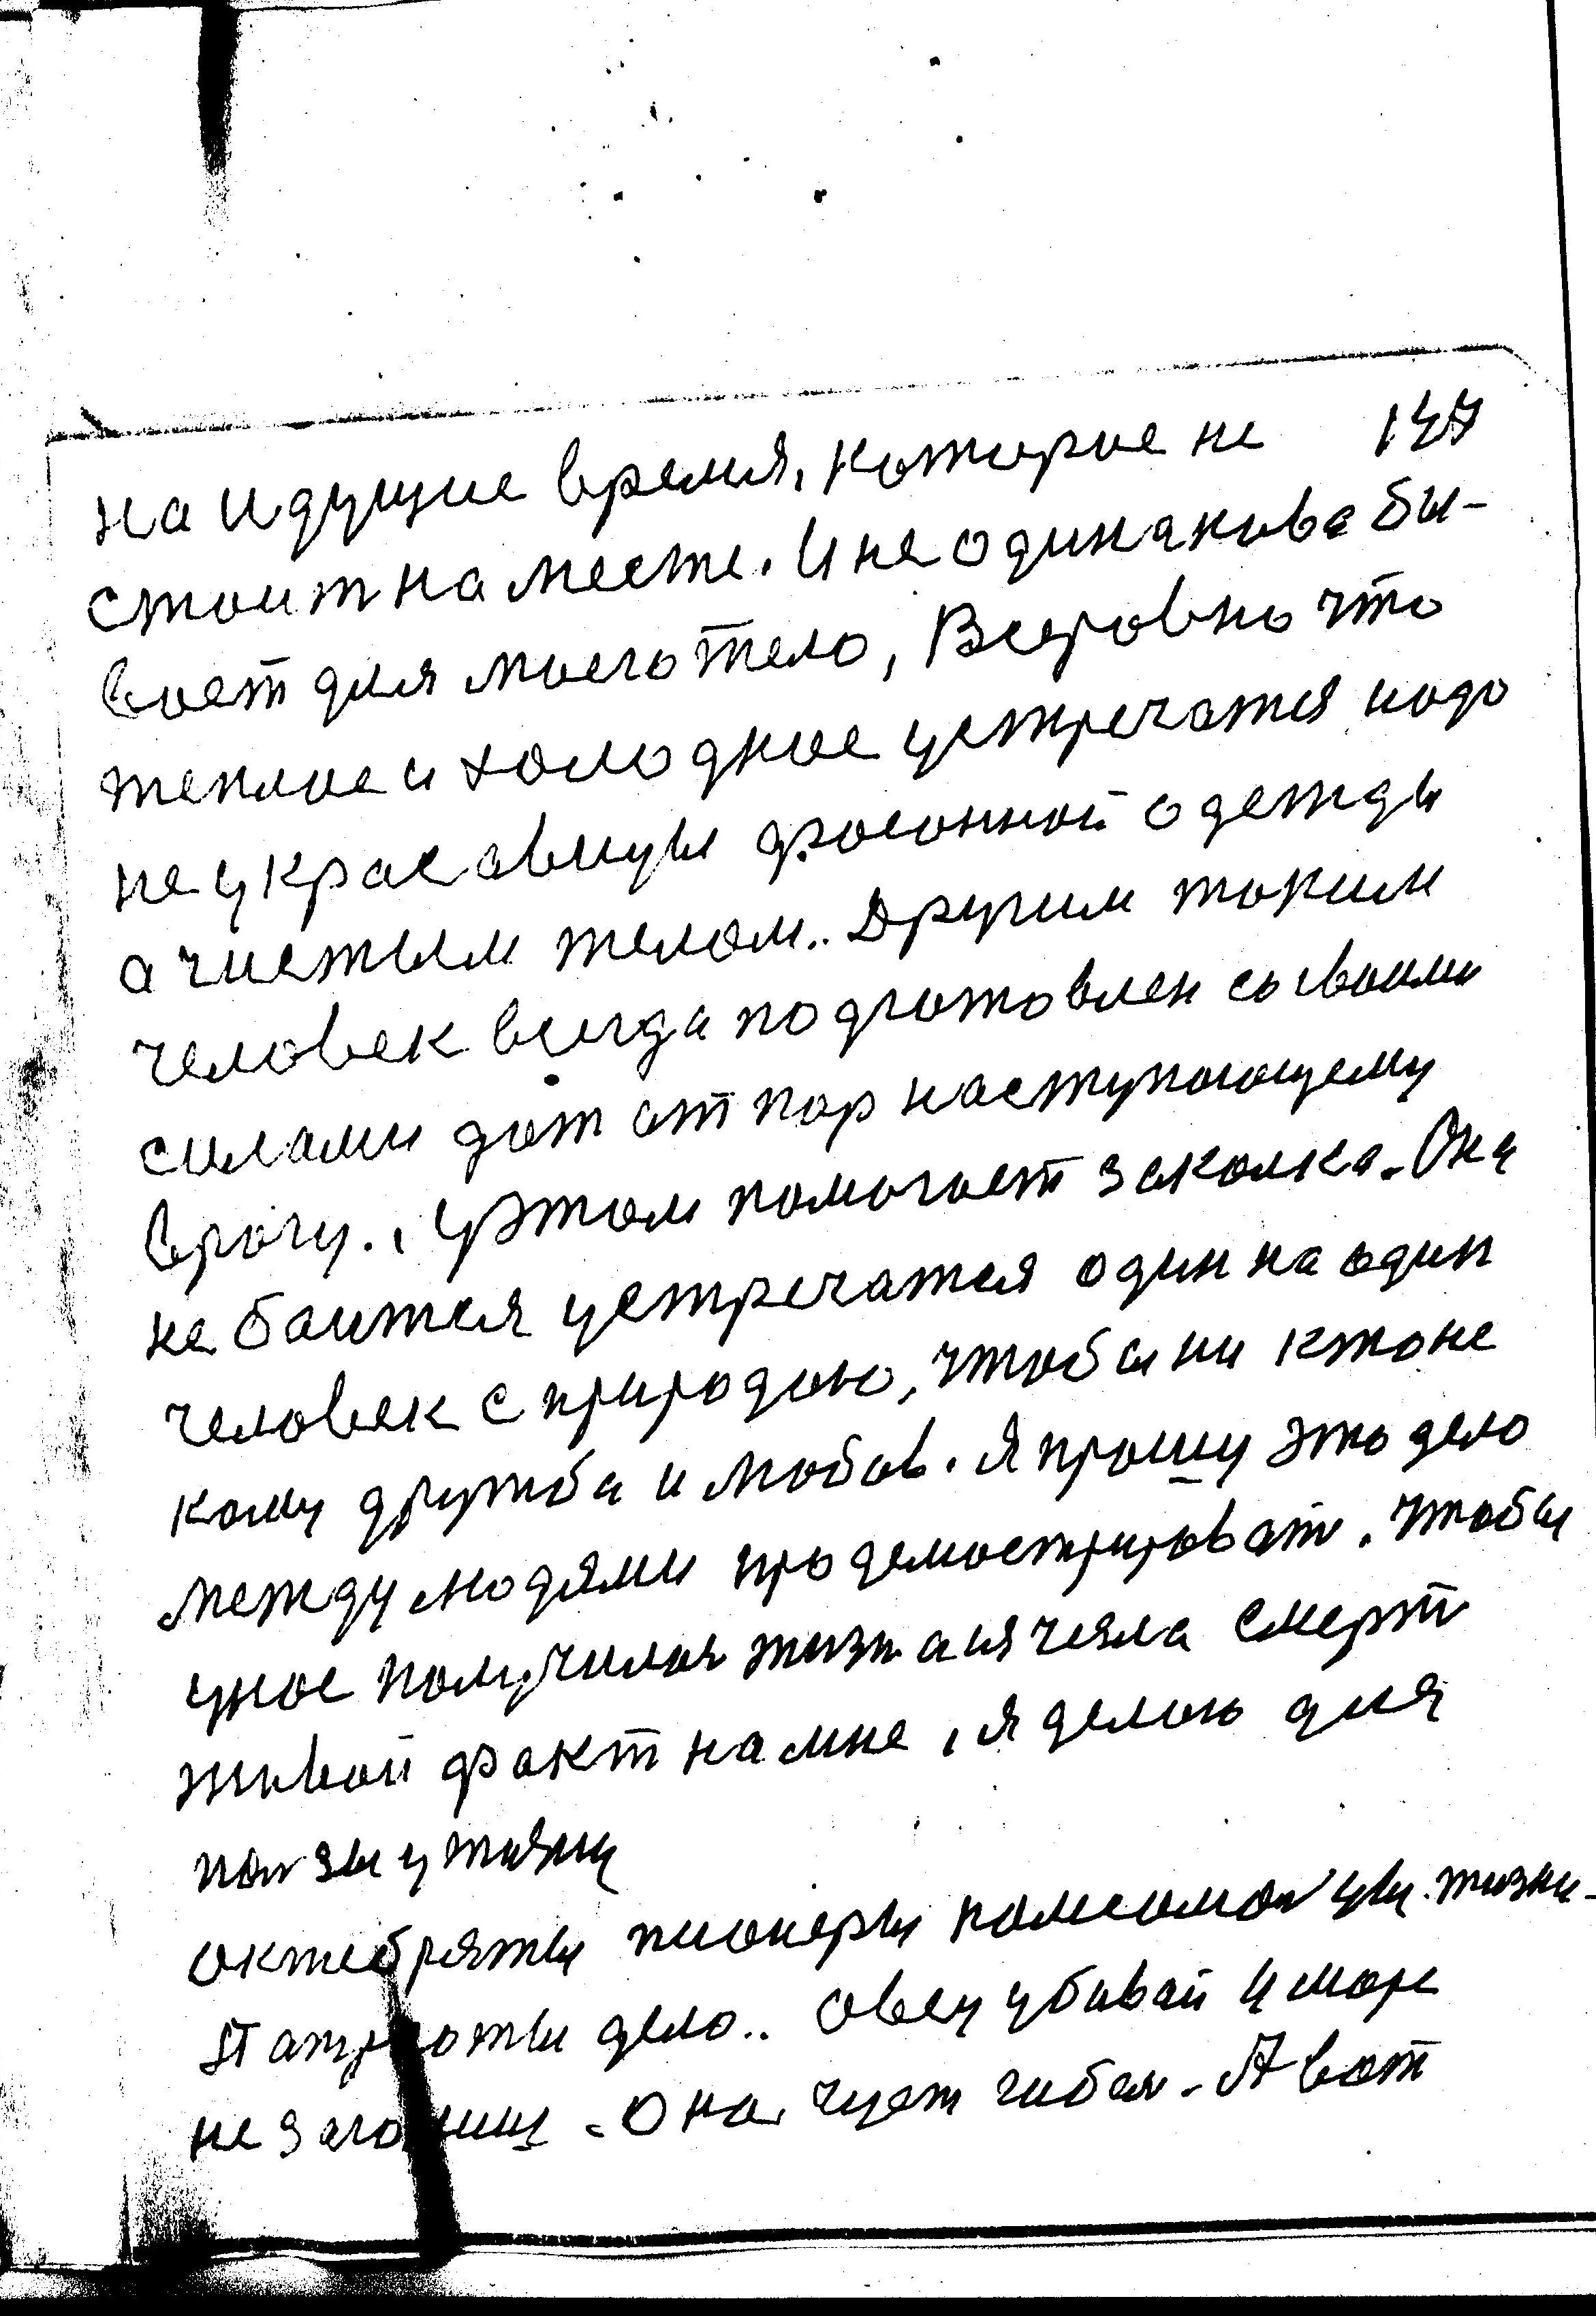 на идущие время, которое не 147
стоит на месте. И не одинакова бы-
вает для моего тело, Всеровно что
теплое и холодное устречатся надо
не у красавицы фасонной одежды
а чистым телом.. Другим таким
человек всегда подготовлен со своими
силами дат отпор наступающему
врагу., у этом помогает закалка. Она
не боится устречатся один на один
человек с природою, чтобы ни кто не
кому дружба и любов. Я прошу это дело
между людями продемострироват. Чтобы
уное получилася жизн а изчезла смерт
живой факт на мне, я делаю для
ползы у жизни
октебряты пионеры комсомолцы жизни-
Патриоты дело.. Овец убивай у море
не загониш. Она чует гибел. А вот